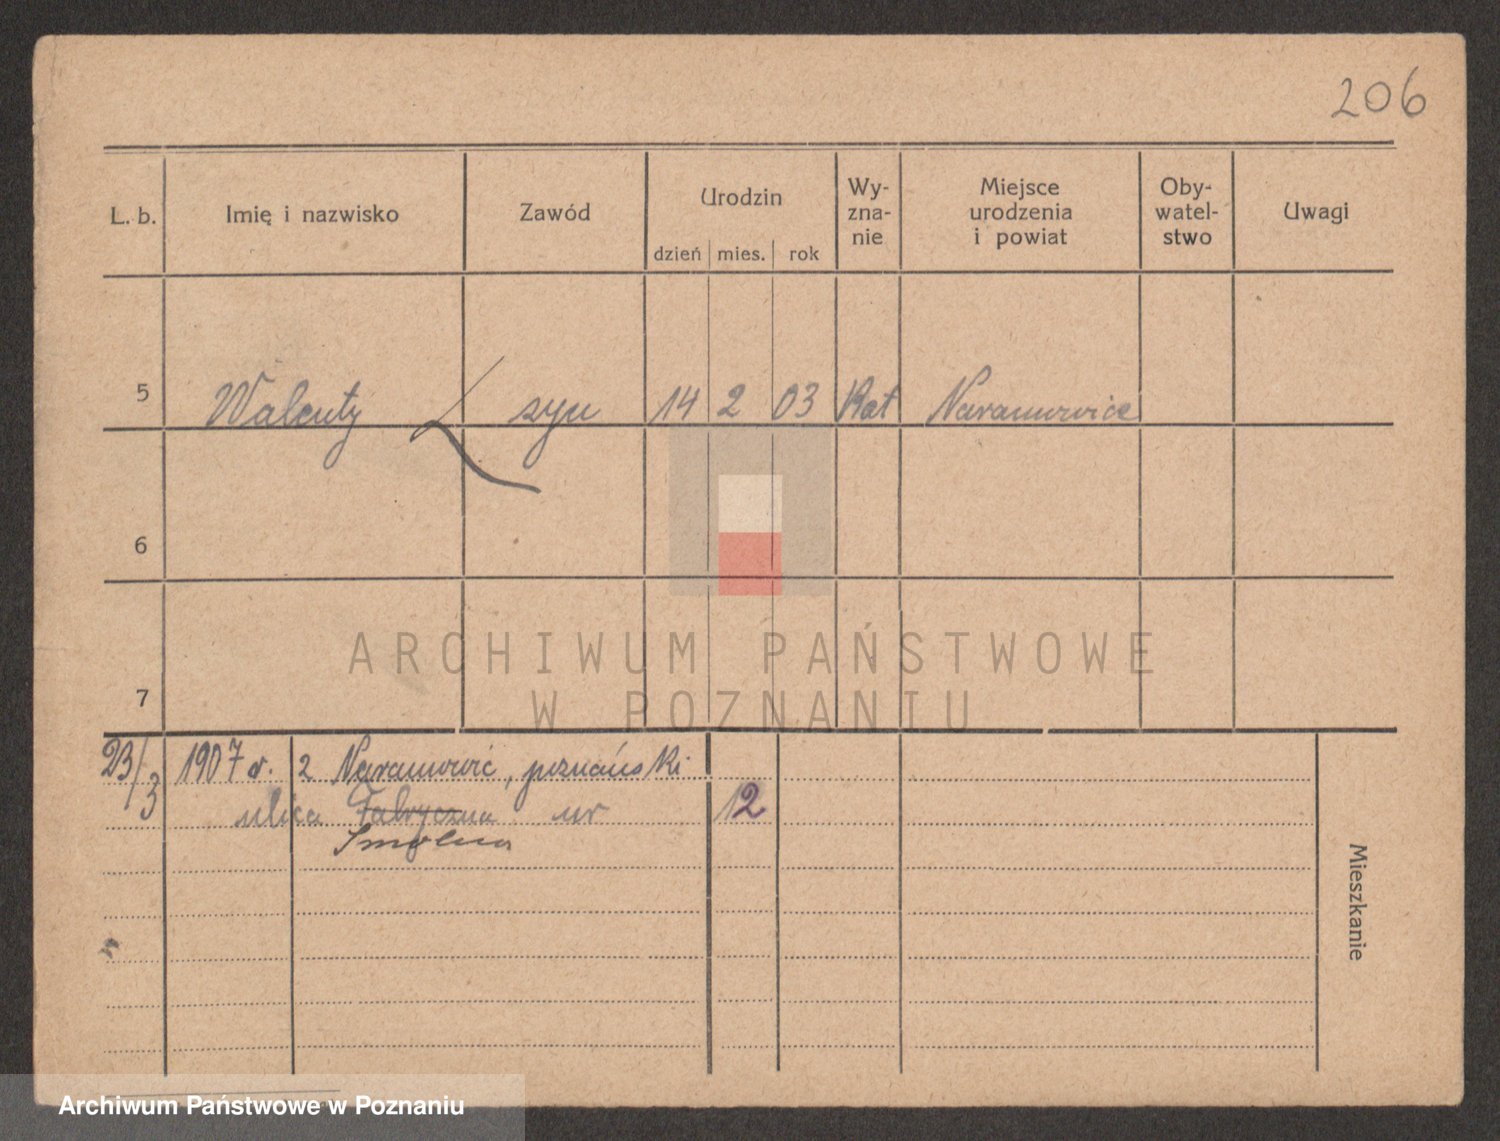 206
L. b. Imię i nazwisko Zawód Urodzin dzień mies. rok Wy-zna-nie Miejsce urodzenia i powiat Oby-watel-stwo Uwagi
5 Walenty syn 14 2 03 Kat Naramowice
6
7
23/3 1907 r. z Naramowic, poznański
ulica Fabryczna nr 12
Smolna
Mieszkanie
ARCHIWUM PAŃSTWOWE
W POZNANIU
Archiwum Państwowe w Poznaniu